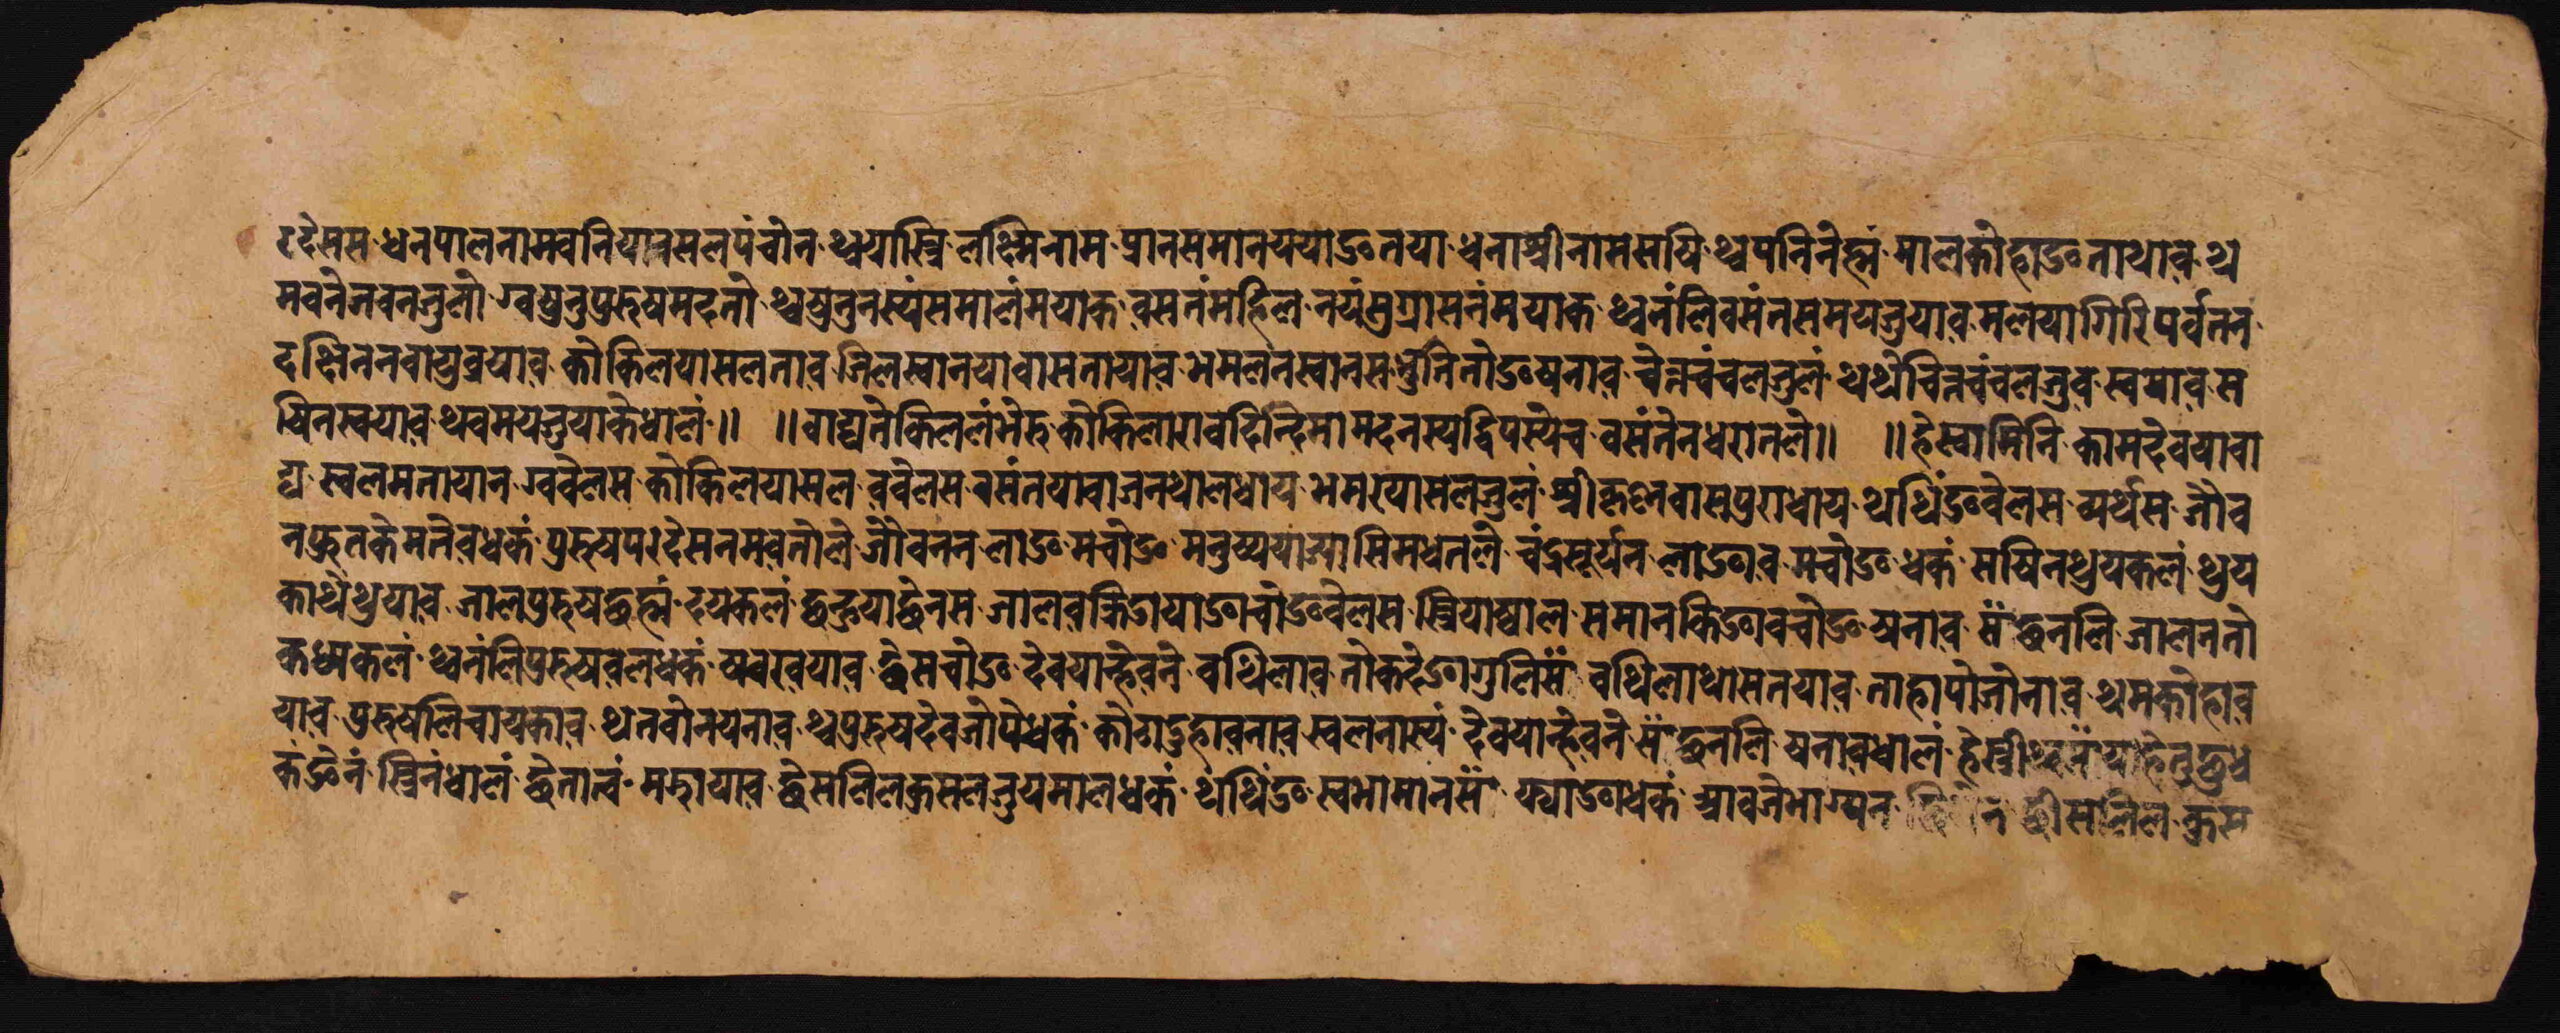 रदेसस धनपालनामवनियारसलपंचोन थ्वयास्त्रि लक्ष्मिनाम प्रानसमानययाङतया धनाश्रीनामसखि थ्वपनिनेह्मं मालकोहाङनाथाव थ
मवनेजवनजुलो ग्वष्रुनुपुरुषमदतो थ्वष्रुनुनस्यंसमालंमयाक वसतंमहिल नयंसुग्रासनंमयाक थ्वनंलिवसंतसमयजुयाव मलयागिरिपर्वतन
दक्षिननवायुवयाव कोकिलयासलताव जिलस्वानयावासनायाव भमलनस्वानस भुनिनोङखनाव चेत्नचंचलजुलं थथेचित्नचंचलजुव स्वयाव स
खिनस्वयाव थवमयजुयाकेधालं॥ ॥वाद्यनेकिललंभेरु कोकिलारावदिन्दिमा मदनस्यद्विपस्येच वसंतेनधरातले॥ ॥हेस्वामिनि कामदेवयावा
द्य स्वलमतायान ग्ववेलस कोकिलयासल ववेलस वसंतयावाजनथालधाय भमरयासलजुलं श्रीकृष्णवासपुराधाय थथिंङवेलस व्यर्थस जौव
नफुतकेमतेवधकं पुरुषपरदेसनमवतोले जौवनन लाङ मचोङ मनुष्यया म्यासिमधेतले चंद्रसूर्यन लाङाव मचोङ धकं सखिनथुयकलं थुय
काथेथुयाव जालपुरुषछह्मं दयकलं छन्हुयाछेनस जालवकिङायाङाचोङवेलस स्त्रियाख्वाल समानकिङावचोङ खनाव सं छनलि जालननो
कधायकलं थ्वनंलिपुरुषवलधकं खबरवयाव छेसचोङ देवयान्हेवने वथिलाव नोकदेङागुलिसं वथिलाथोसतयाव ताहापोजोनाव थमकोहाव
याव पुरुषलिचायकाव थतबोनयनाव थ्वपुरुषदेवजोपेधकं कोठादुहावनाव स्वलनास्यं देवयान्हेवने सं छनलि खनावधालं हेस्त्री थ्वसं याहेतुछुध
कंङेनं स्त्रिनंधालं छेनात्वं मफयाव छेसलिलकुसलजुयमालधकं थथिंङ स्वभामानसं यफ्याङाधकं आवजेभाग्यन छिसलिल कुस